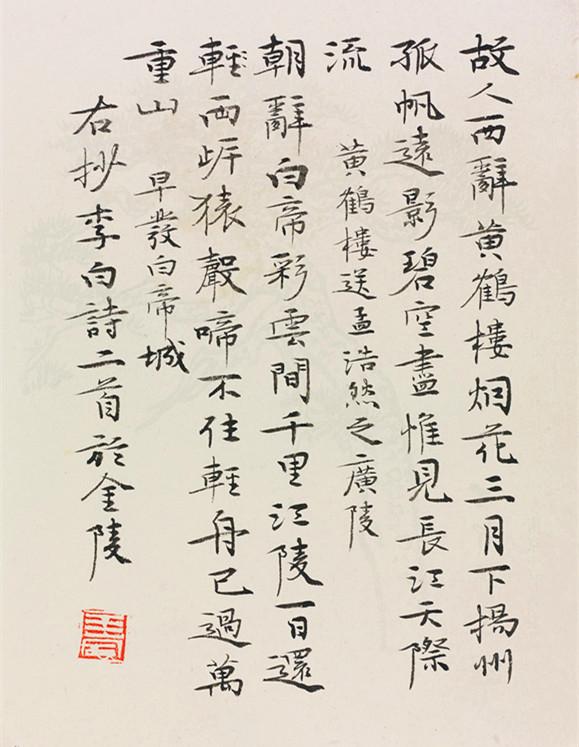 故人西辭黄鶴樓烟花三月下揚州
孤帆遠影碧空盡惟見長江天際
流 黄鶴樓送孟浩然之廣陵
朝辭白帝彩雲間千里江陵一日還
輕兩岸猿聲啼不住輕舟已過萬
重山 早發白帝城
右抄李白詩二首於金陵